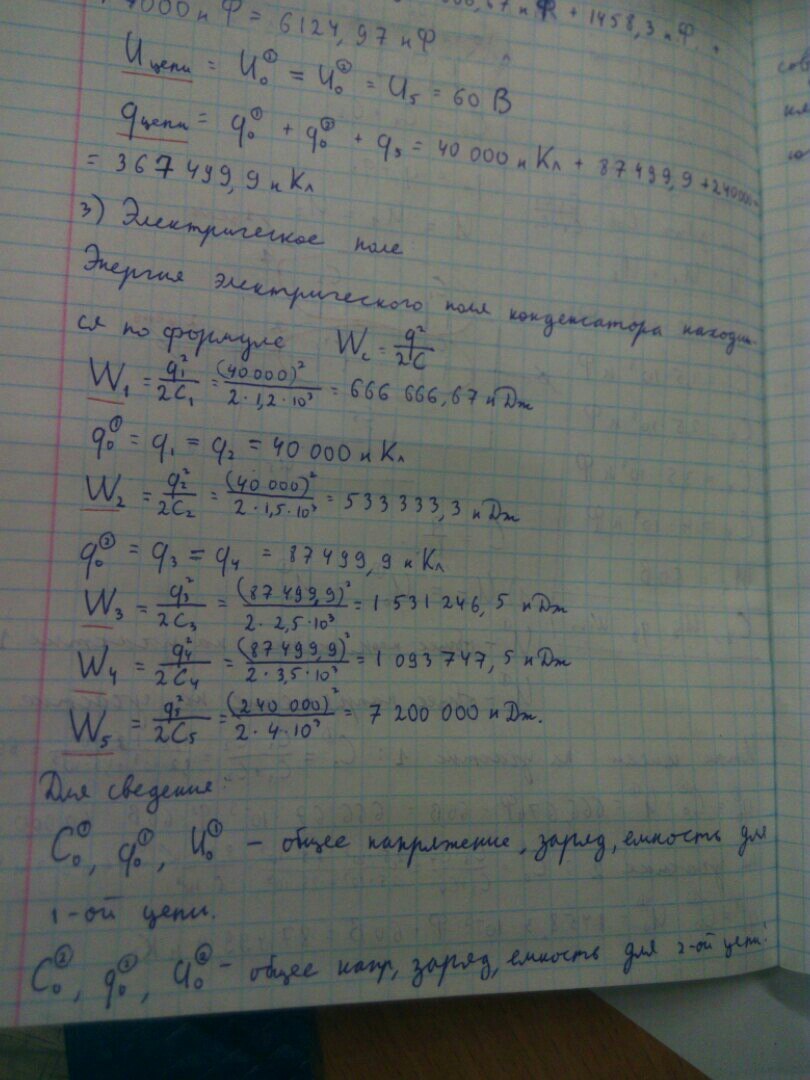 4000 нФ = 6124,97 нФ
,67 нФ + 1458,3 нФ.
U цепи = U₀① = U₀② = U₅ = 60 В
q цепи = q₀① + q₀② + q₅ = 40 000 н Кл + 87499,9 + 240000
= 367 499,9 н Кл
3) Электрическое поле
Энергия электрического поля конденсатора находит-
ся по формуле W_c = q²/2C
W₁ = q₁²/2C₁ = (40 000)²/2·1,2·10³ = 666 666,67 н Дж
q₀① = q₁ = q₂ = 40 000 н Кл
W₂ = q₂²/2C₂ = (40 000)²/2·1,5·10³ = 533 333,3 н Дж
q₀② = q₃ = q₄ = 87499,9 н Кл
W₃ = q₃²/2C₃ = (87 499,9)²/2·2,5·10³ = 1 531 246,5 н Дж
W₄ = q₄²/2C₄ = (87499,9)²/2·3,5·10³ = 1 093 747,5 н Дж
W₅ = q₅²/2C₅ = (240 000)²/2·4·10³ = 7 200 000 н Дж.
Для сведения:
C₀①, q₀①, U₀① – общее напряжение, заряд, емкость для
1-ой цепи.
C₀②, q₀②, U₀② – общее напр, заряд, емкость для 2-ой цепи.